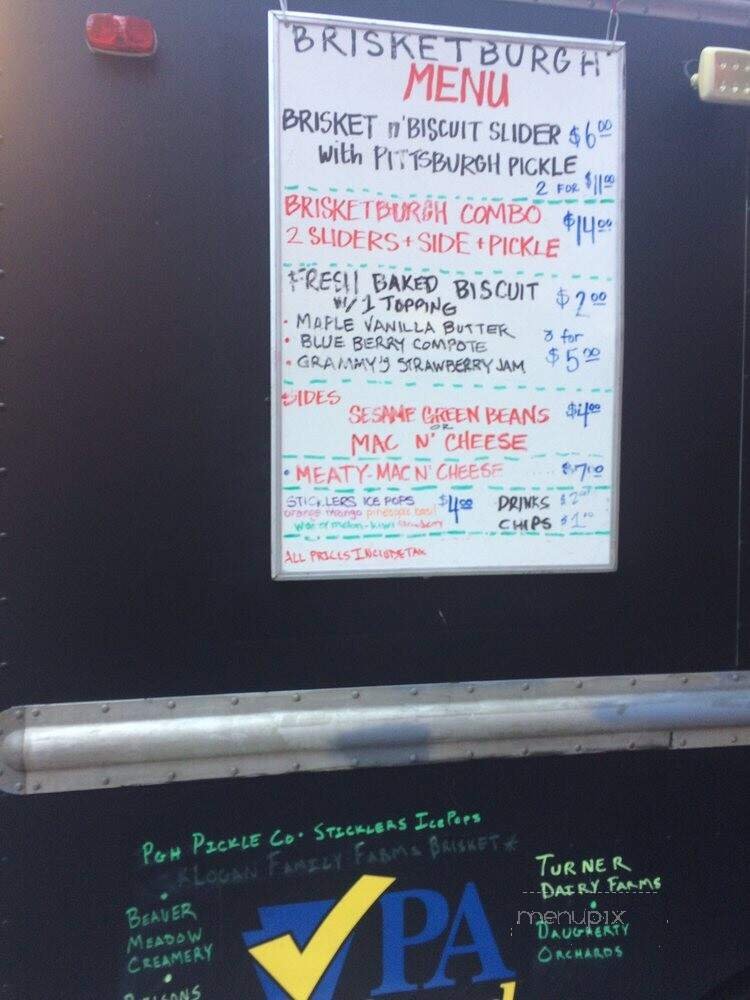 BRISKETBURGH
MENU
BRISKET n' BISCUIT SLIDER $6.00
with PITTSBURGH PICKLE
2 FOR $11.00
BRISKETBURGH COMBO $14.00
2 SLIDERS + SIDE + PICKLE
FRESH BAKED BISCUIT $2.00
W/ 1 TOPPING
• MAPLE VANILLA BUTTER
• BLUE BERRY COMPOTE
• GRAMMY'S STRAWBERRY JAM
3 for
$5.00
SIDES
SESAME GREEN BEANS $4.00
OR
MAC N' CHEESE
• MEATY-MAC N' CHEESE ..... $7.00
STICKLERS ICE POPS $4.00
orange mango pineapple basil
watermelon-kiwi strawberry
DRINKS $2.00
CHIPS $1.00
ALL PRICES INCLUDE TAX
PGH PICKLE CO. STICKLERS IcePops
*LOGAN FAMILY FARMS BRISKET*
• BEAVER
MEADOW
CREAMERY
•
TURNER
DAIRY FARMS
•
DAUGHERTY
ORCHARDS
menupix
PA